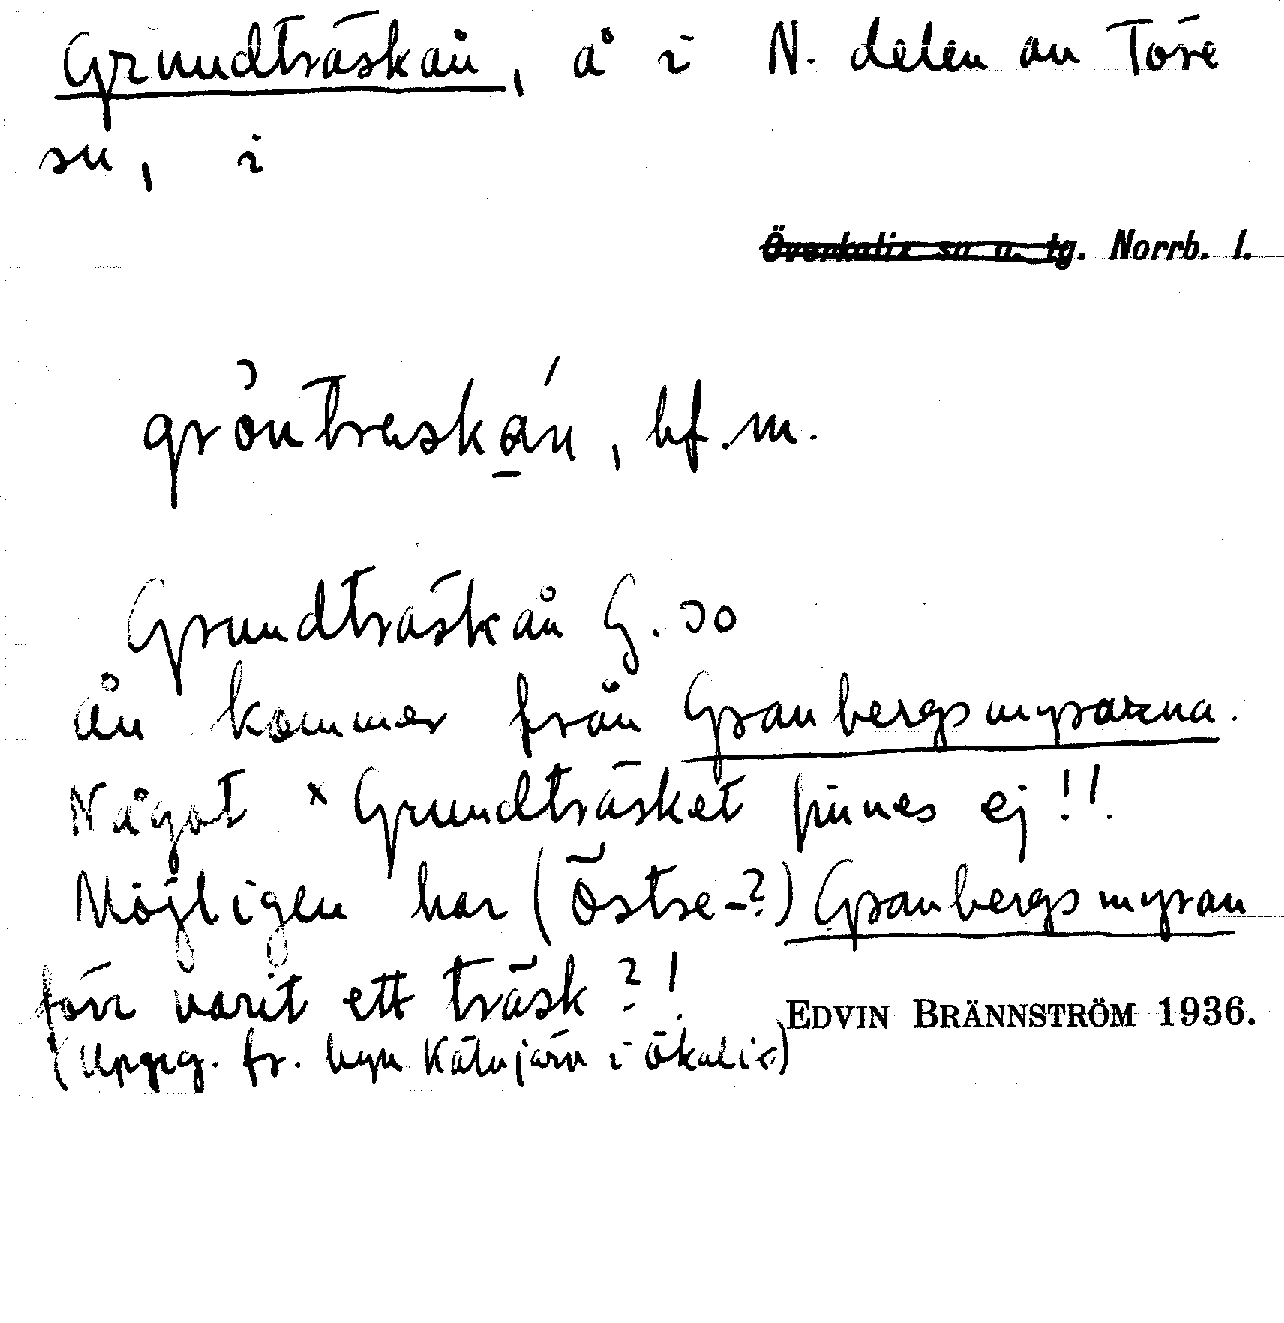 Grundträskån, å i N. delen av Töre
sn, i
Överkalix sn o. tg. Norrb. l.
gròntraskán, bf. m.
Grundträskån G. 30
ån kommer från Granbergsmyrarna.
Något × Grundträsket finnes ej!!
Möjligen har (Östre-?) Granbergsmyran
förr varit ett träsk?!
EDVIN BRÄNNSTRÖM 1936.
(Uppg. fr. byn Kätujärv i Ökalix)